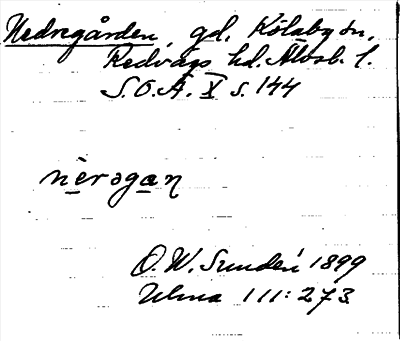 Nedregården, gd, Kölaby sn,
Redvägs hd. Älvsb. l.
S.O.Ä. X s. 144
nèrəgan
O.W. Sundén 1899
Ulma 111:273